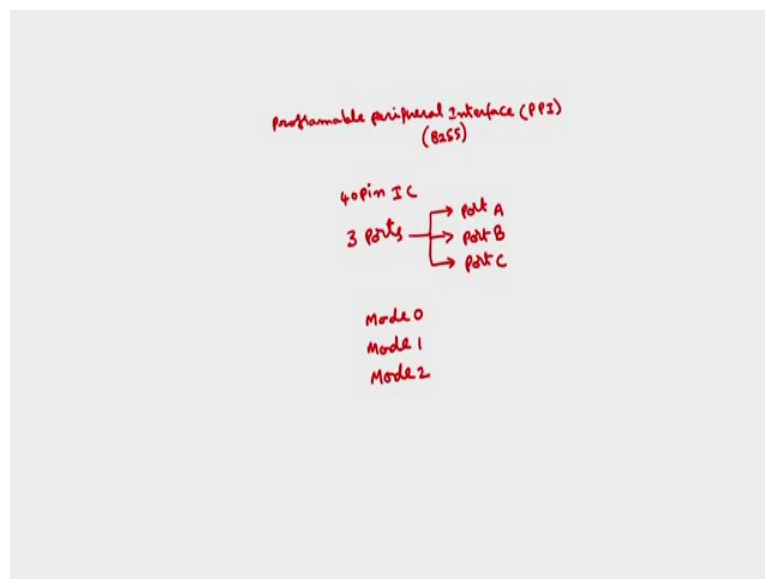 Programable peripheral Interface (PPI)
(8255)
40 Pin IC
3 Ports
Port A
Port B
Port C
Mode 0
Mode 1
Mode 2